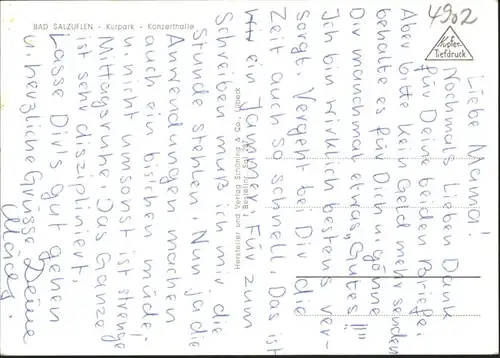 BAD SALZUFLEN - Kurpark - Konzerthalle
4902
Kupfer-
Tiefdruck
Hersteller und Verlag Schöning & Co., Lübeck
Bestellnr. Sal
Liebe Mama!
Nochmals lieben Dank
für Deine beiden Briefe.
Aber bitte kein Geld mehr senden
behalte es für Dich u gönne
Dir manchmal etwas "Gutes!!"
Ich bin wirklich bestens ver-
sorgt. Vergeht bei Dir die
Zeit auch so schnell. Das ist
ein Jammer. Für zum
Schreiben muß ich mir die
Stunde stehlen. Nun ja die
Anwendungen machen
auch ein bischen müde.
u. nicht umsonst ist strenge
Mittagsruhe. Das Ganze
ist sehr diszipliniert.
Lasse Dir's gut gehen
u. herzliche Grüsse Deine